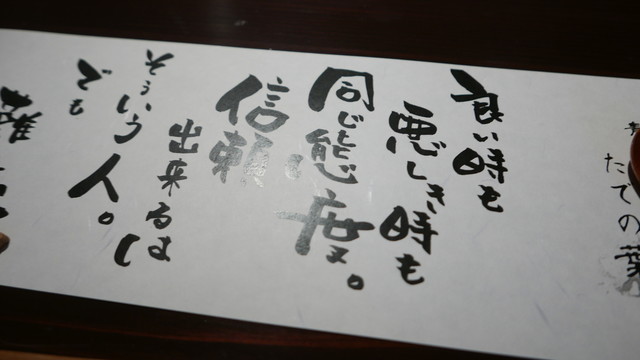 たでの葉
良い時も
悪しき時も
同じ態度。
信頼
出来るは
そういう人。
でも